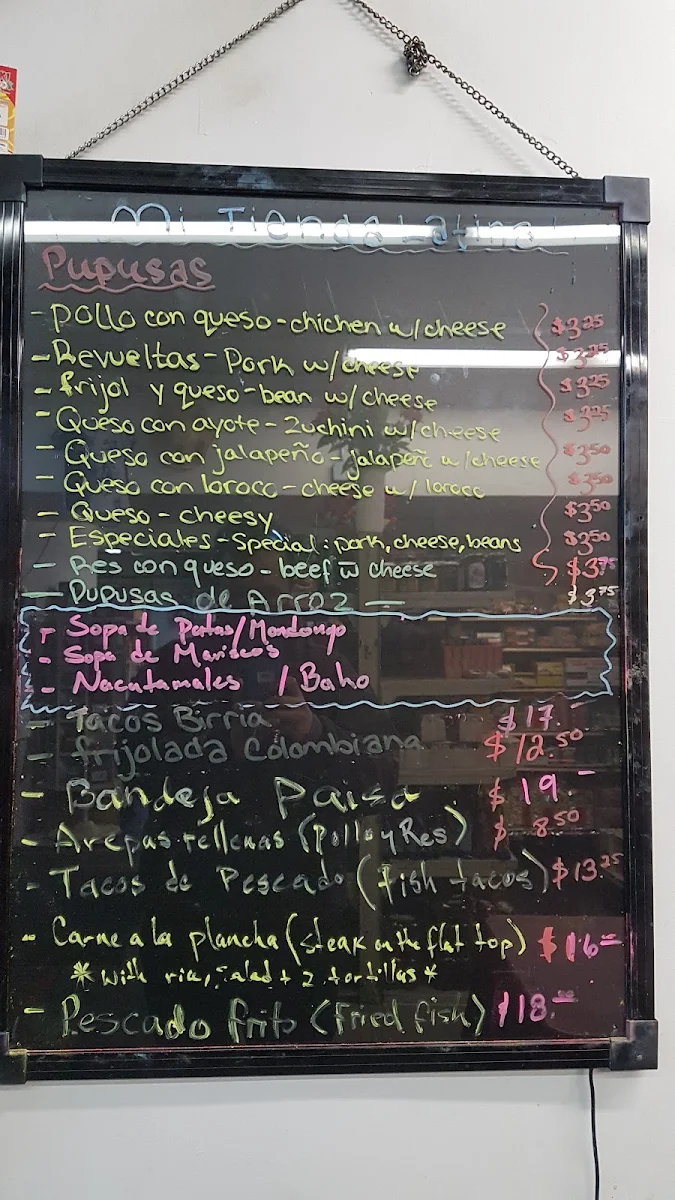 Mi Tienda Latina
Pupusas
- Pollo con queso - chichen w/cheese $3.25
- Revueltas - Pork w/cheese $3.25
- frijol y queso - bean w/cheese $3.25
- Queso con ayote - Zuchini w/cheese $3.25
- Queso con jalapeño - jalapeñ w/cheese $3.50
- Queso con lorocc - cheese w/ lorocc $3.50
- Queso - cheesy $3.50
- Especiales - Special: pork, cheese, beans $3.50
- Res con queso - beef w cheese $3.75
- Pupusas de Arroz - $3.75
- Sopa de Patas/Mondongo
- Sopa de Mariscos
- Nacatamales / Baho
- Tacos Birria $17.-
- frijolada Colombiana $12.50
- Bandeja Paisa $19.-
- Arepas rellenas (Pollo y Res) $8.50
- Tacos de Pescado (fish tacos) $13.25
- Carne a la plancha (steak on the flat top) $16-
* with rice, salad + 2 tortillas *
- Pescado frito (fried fish) $18.-